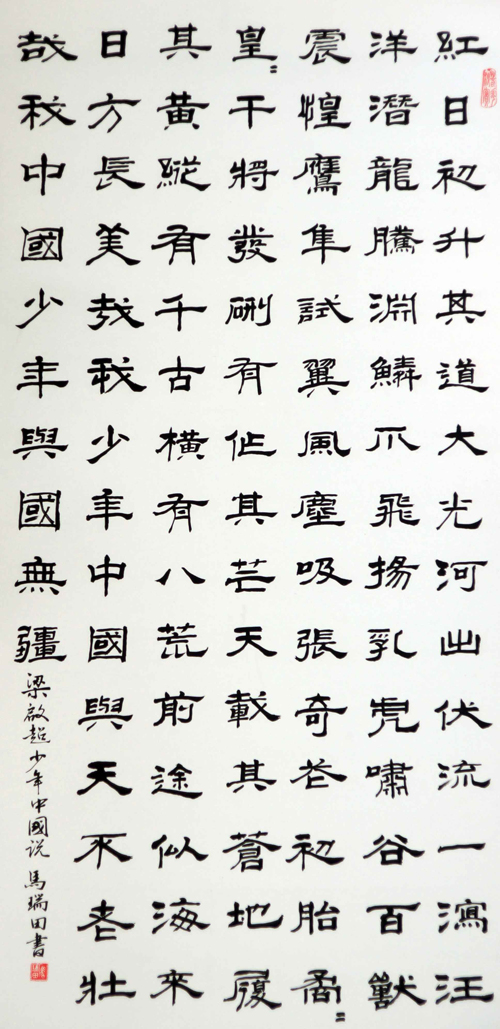 紅日初升其道大光河出伏流一瀉汪
洋潛龍騰淵鱗爪飛揚乳虎嘯谷百獸
震惶鷹隼試翼風塵吸張奇花初胎矞〻
皇〻干將發硎有作其芒天載其蒼地履
其黃縱有千古橫有八荒前途似海來
日方長美哉我少年中國與天不老壯
哉我中國少年與國無疆
梁啟超少年中國说 馬瑞田書